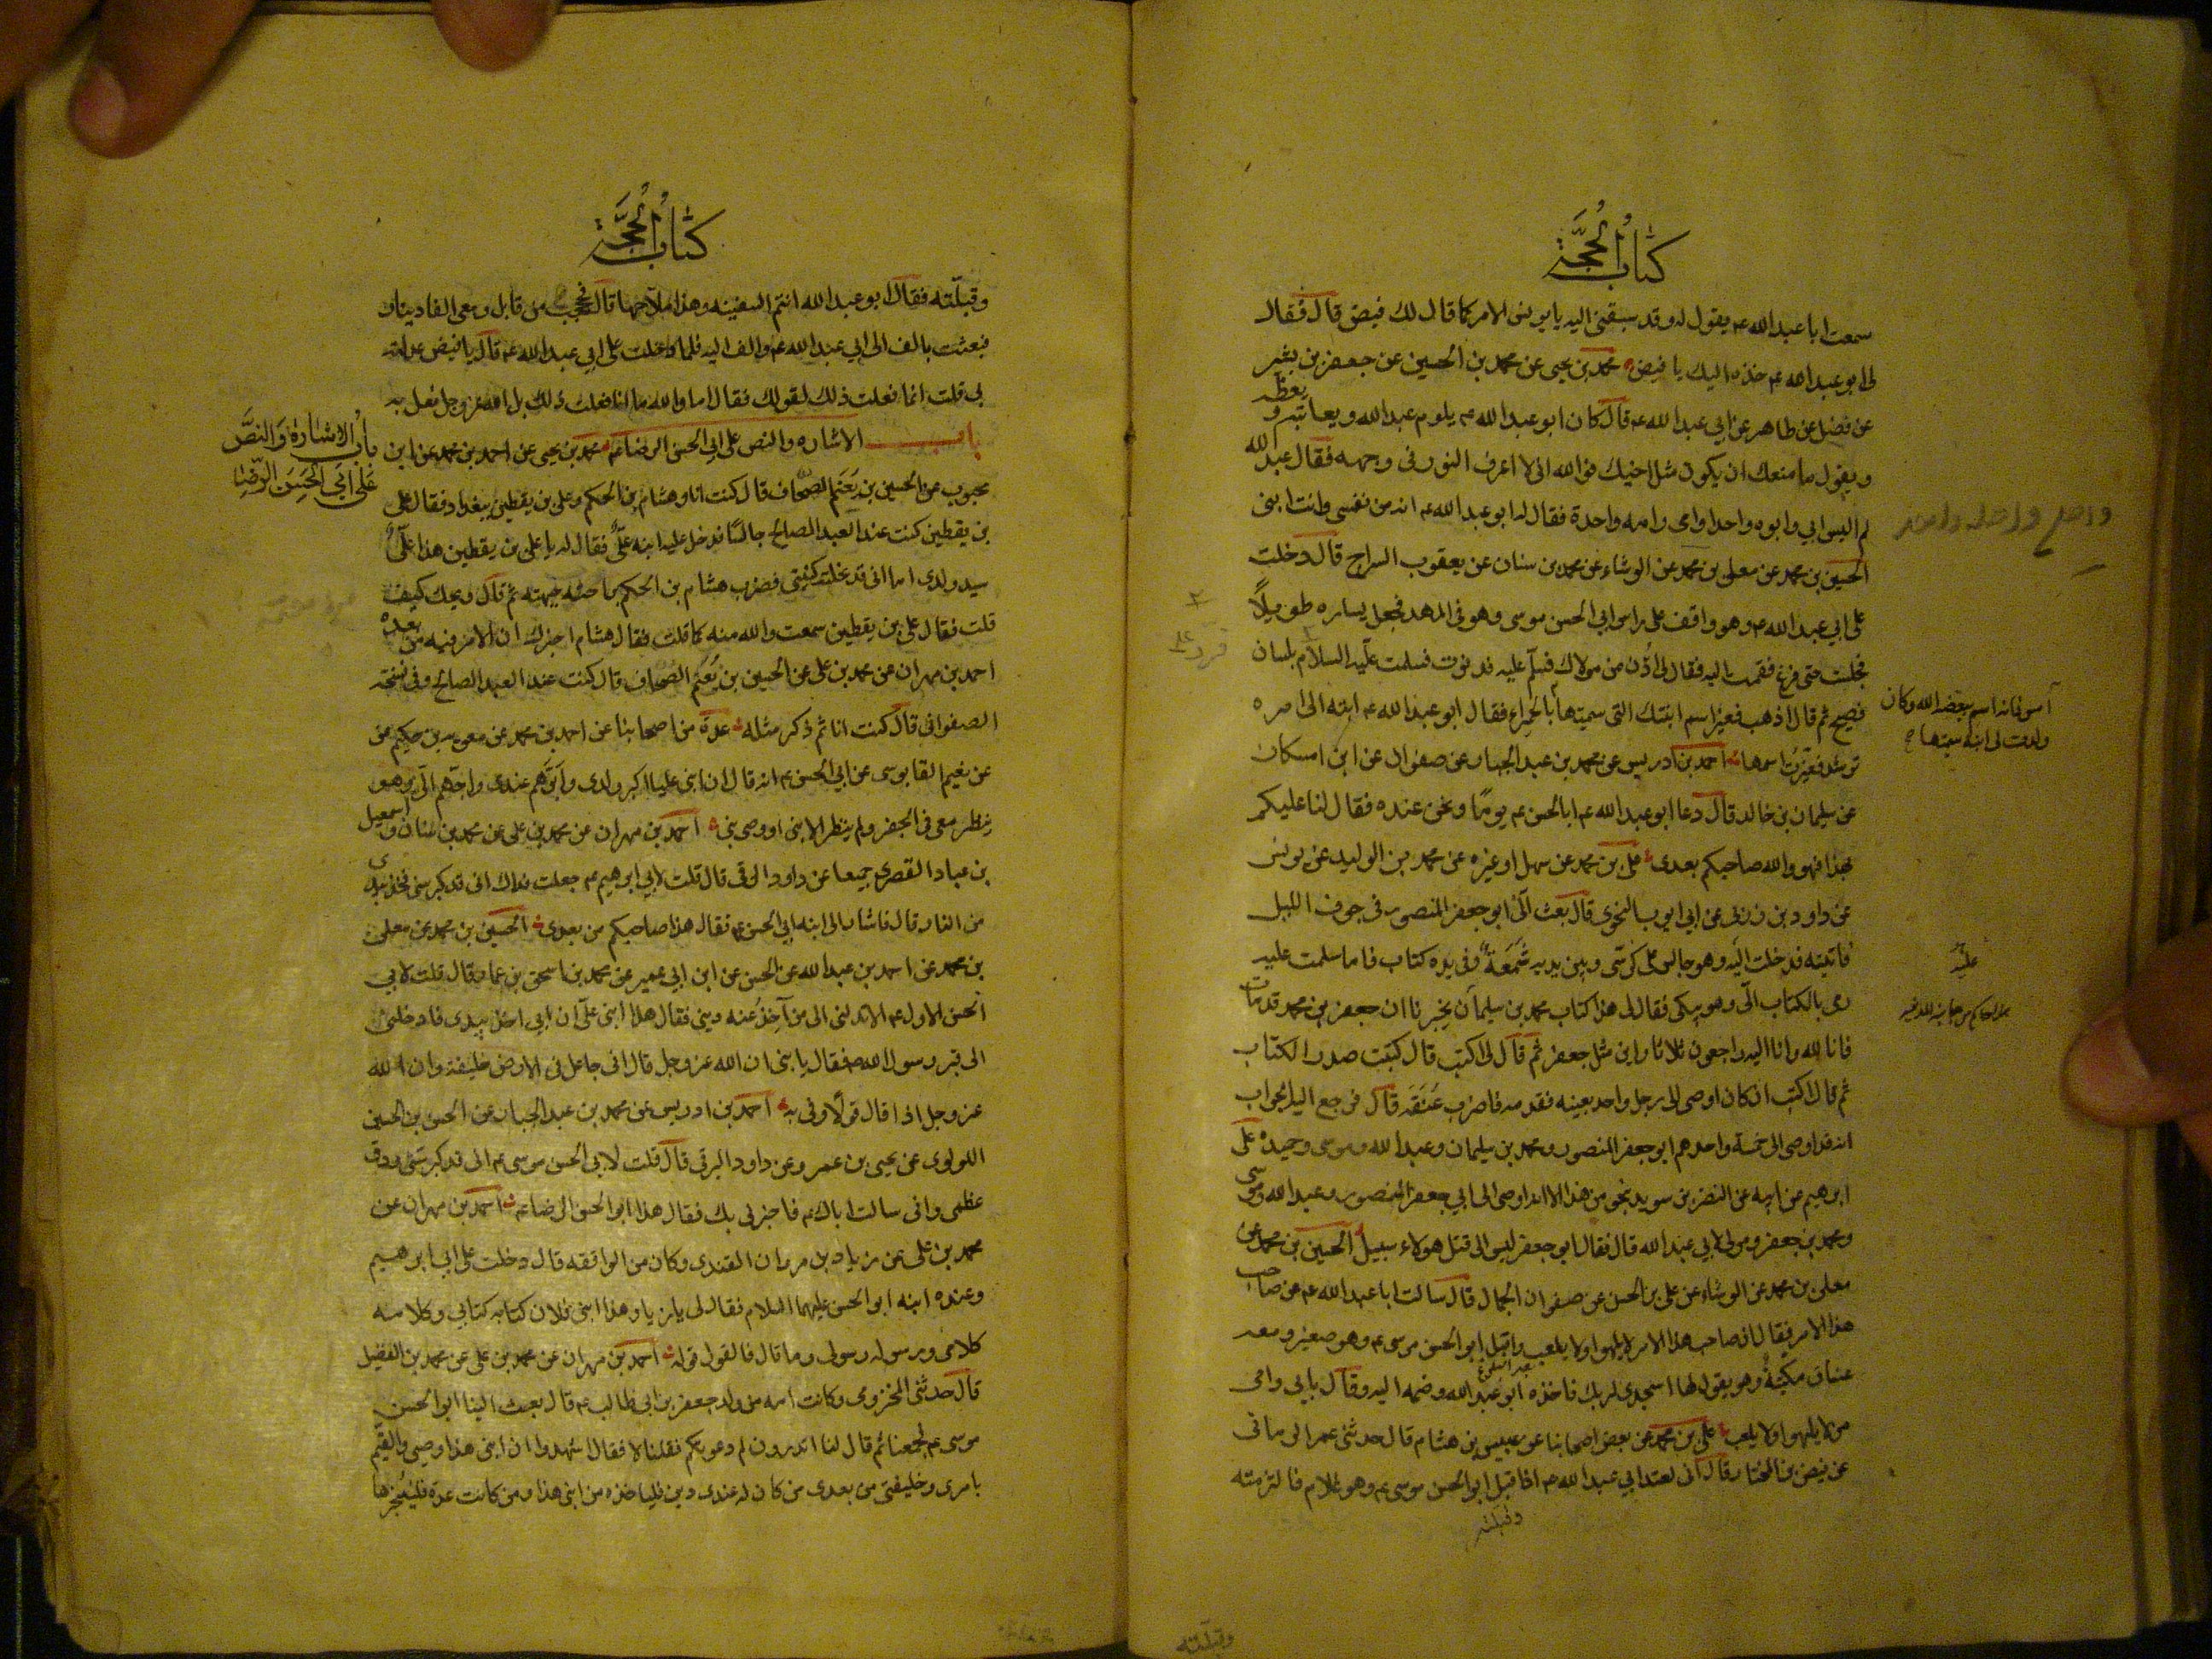 كتاب الحجة
سمعت ابا عبد الله ع‍ يقول له وقد سبقنى اليه يا يونس الامر كما قال لك فيض قال فقال
لى ابو عبد الله ع‍ خذه اليك يا فيض محمد بن يحيى عن محمد بن الحسين عن جعفر بن بشير
عن فضيل عن طاهر عن ابي عبد الله ع‍ قال كان ابو عبد الله ع‍ يلوم عبد الله ويعاتبه و يعظه
ويقول ما منعك ان يكون مثل اخيك فوالله انى لا اعرف النور فى وجهه فقال عبد الله
لم اليس ابي وابوه واحدا وامى وامه واحدة فقال له ابو عبد الله ع‍ انه من نفسى وانت ابنى
الحسين بن محمد عن معلى بن محمد عن الوشاء عن محمد بن سنان عن يعقوب السراج قال دخلت
على ابي عبد الله ع‍ وهو واقف على راس ابي الحسن موسى وهو فى المهد فجعل يساره طويلاً
فجلست حتى فرغ فقمت اليه فقال لى ادن من مولاك فسلم عليه فدنوت فسلمت عليه السلام بلسان
فصيح ثم قال اذهب فغير اسم ابنتك التى سميتها بالحميراء فقال ابو عبد الله ع‍ انته الى امره
امس فانه اسم يبغضه الله وكان
ولدت لى ابنة سميتها
ترشد فغيرت اسمها احمد بن ادريس عن محمد بن عبد الجبار عن صفوان عن ابن مسكان
عن سليمان بن خالد قال دعا ابو عبد الله ع‍ ابا الحسن ع‍ يومًا ونحن عنده فقال لنا عليكم
بهذا فهو والله صاحبكم بعدى على بن محمد عن سهل او غيره عن محمد بن الوليد عن يونس
عن داود بن زربى عن ابي ايوب النحوى قال بعث الىّ ابو جعفر المنصور فى جوف الليل
فاتيته فدخلت اليه وهو جالس على كرسى وبين يديه شمعة وفى يده كتاب فلما سلمت عليه
عليه
رمى بالكتاب الىّ وهو يبكى فقال لى هذا كتاب محمد بن سليمان يخبرنا ان جعفر بن محمد قد مات
فانا لله وانا اليه راجعون ثلاثا واين مثل جعفر ثم قال لى اكتب قال كتبت صدر الكتاب
ثم قال اكتب ان كان اوصى الى رجل واحد بعينه فقدمه فاضرب عنقه قال فرجع اليه الجواب
انه قد اوصى الى خمسة واحدهم ابو جعفر المنصور ومحمد بن سليمان وعبد الله وموسى وحميدة على
ابرهيم عن ابيه عن النضر بن سويد بنحو من هذا الا انه اوصى الى ابي جعفر المنصور وعبد الله وموسى
ومحمد بن جعفر ومولى لابي عبد الله قال فقال ابو جعفر ليس الى قتل هولاء سبيل الحسين بن محمد عن
معلى بن محمد عن الوشاء عن على بن الحسن عن صفوان الجمال قال سالت ابا عبد الله ع‍ عن صاحب
هذا الامر فقال ان صاحب هذا الامر لا يلهو ولا يلعب واقبل ابو الحسن موسى ع‍ وهو صغير ومعه
عناق مكية وهو يقول لها اسجدى لربك فاخذه ابو عبد الله وضمه اليه وقال بابي وامى
من لا يلهو ولا يلعب على بن محمد عن بعض اصحابنا عن عبيس بن هشام قال حدثنى عمر الرمانى
عن فيض بن المختار قال انى لعند ابي عبد الله ع‍ اذ اقبل ابو الحسن موسى ع‍ وهو غلام فالتزمته
وقبلته
كتاب الحجة
وقبلته فقال ابو عبد الله انتم السفينة وهذا ملاحها قال فحججت من قابل ومعى الفا دينار
فبعثت بالف الى ابي عبد الله ع‍ والف اليه فلما دخلت على ابي عبد الله ع‍ قال يا فيض عدلته
بى قلت انما فعلت ذلك لقولك فقال اما والله ما انا فعلت ذلك بل الله عز وجل فعل به
باب الاشاره والنص على ابى الحسن الرضا ع‍ محمد بن يحيى عن احمد بن محمد عن ابن
باب الاشارة والنص
على ابي الحسن الرضا
محبوب عن الحسين بن نعيم الصحاف قال كنت انا وهشام بن الحكم وعلى بن يقطين ببغداد فقال على
بن يقطين كنت عند العبد الصالح جالسًا فدخل عليه ابنه على فقال له يا على بن يقطين هذا على
سيد ولدى اما انى قد نحلته كنيتى فضرب هشام بن الحكم براحته جبهته ثم قال ويحك كيف
قلت فقال على بن يقطين سمعت والله منه كما قلت فقال هشام اخبرك ان الامر فيه من بعده
احمد بن مهران عن محمد بن على عن الحسين بن نعيم الصحاف قال كنت عند العبد الصالح وفى نسخة
الصفوانى قال كنت انا ثم ذكر مثله عدة من اصحابنا عن احمد بن محمد عن معويه بن حكيم عن
عن نعيم القابوسى عن ابي الحسن ع‍ انه قال ان ابنى عليا اكبر ولدى وابرهم عندى واحبهم الى وهو
ينظر معى فى الجفر ولم ينظر الا نبى او وصى نبى احمد بن مهران عن محمد بن على عن محمد بن سنان و اسمعيل
بن عباد القصرى جميعا عن داود الرقى قال قلت لابي ابرهيم ع‍ جعلت فداك انى قد كبر سنى فخذ بيدى
من النار قال فاشار الى ابنه ابي الحسن ع‍ فقال هذا صاحبكم من بعدى الحسين بن محمد عن معلى
بن محمد عن احمد بن عبد الله عن الحسن عن ابن ابي عمير عن محمد بن اسحق بن عمار قال قلت لابي
الحسن الاول ع‍ الا تدلنى الى من آخذ عنه دينى فقال هذا ابنى على ان ابي اخذ بيدى فادخلنى
الى قبر رسول الله ص فقال يا بنى ان الله عز وجل قال انى جاعل فى الارض خليفة وان الله
عز وجل اذا قال قولا وفى به احمد بن ادريس عن محمد بن عبد الجبار عن الحسن بن الحسين
اللولوى عن يحيى بن عمرو عن داود الرقى قال قلت لابي الحسن موسى ع‍ انى قد كبر سنى ودق
عظمى وانى سالت اباك ع‍ فاخبرنى بك فقال هذا ابو الحسن الرضا ع‍ احمد بن مهران عن
محمد بن على عن زياد بن مروان القندى وكان من الواقفه قال دخلت على ابي ابرهيم
وعنده ابنه ابو الحسن عليهما السلام فقال لى يا زياد هذا ابنى فلان كتابه كتابي وكلامه
كلامى ورسوله رسولى وما قال فالقول قوله احمد بن مهران عن محمد بن على عن محمد بن الفضيل
قال حدثنى المخزومى وكانت امه من ولد جعفر بن ابى طالب ع‍ قال بعث الينا ابو الحسن
موسى ع‍ فجمعنا ثم قال لنا اتدرون لم دعوتكم فقلنا لا فقال اشهدوا ان ابنى هذا وصيى والقيم
بامرى وخليفتى من بعدى من كان له عندى دين فلياخذه من ابنى هذا ومن كانت له عدة فلينجزها